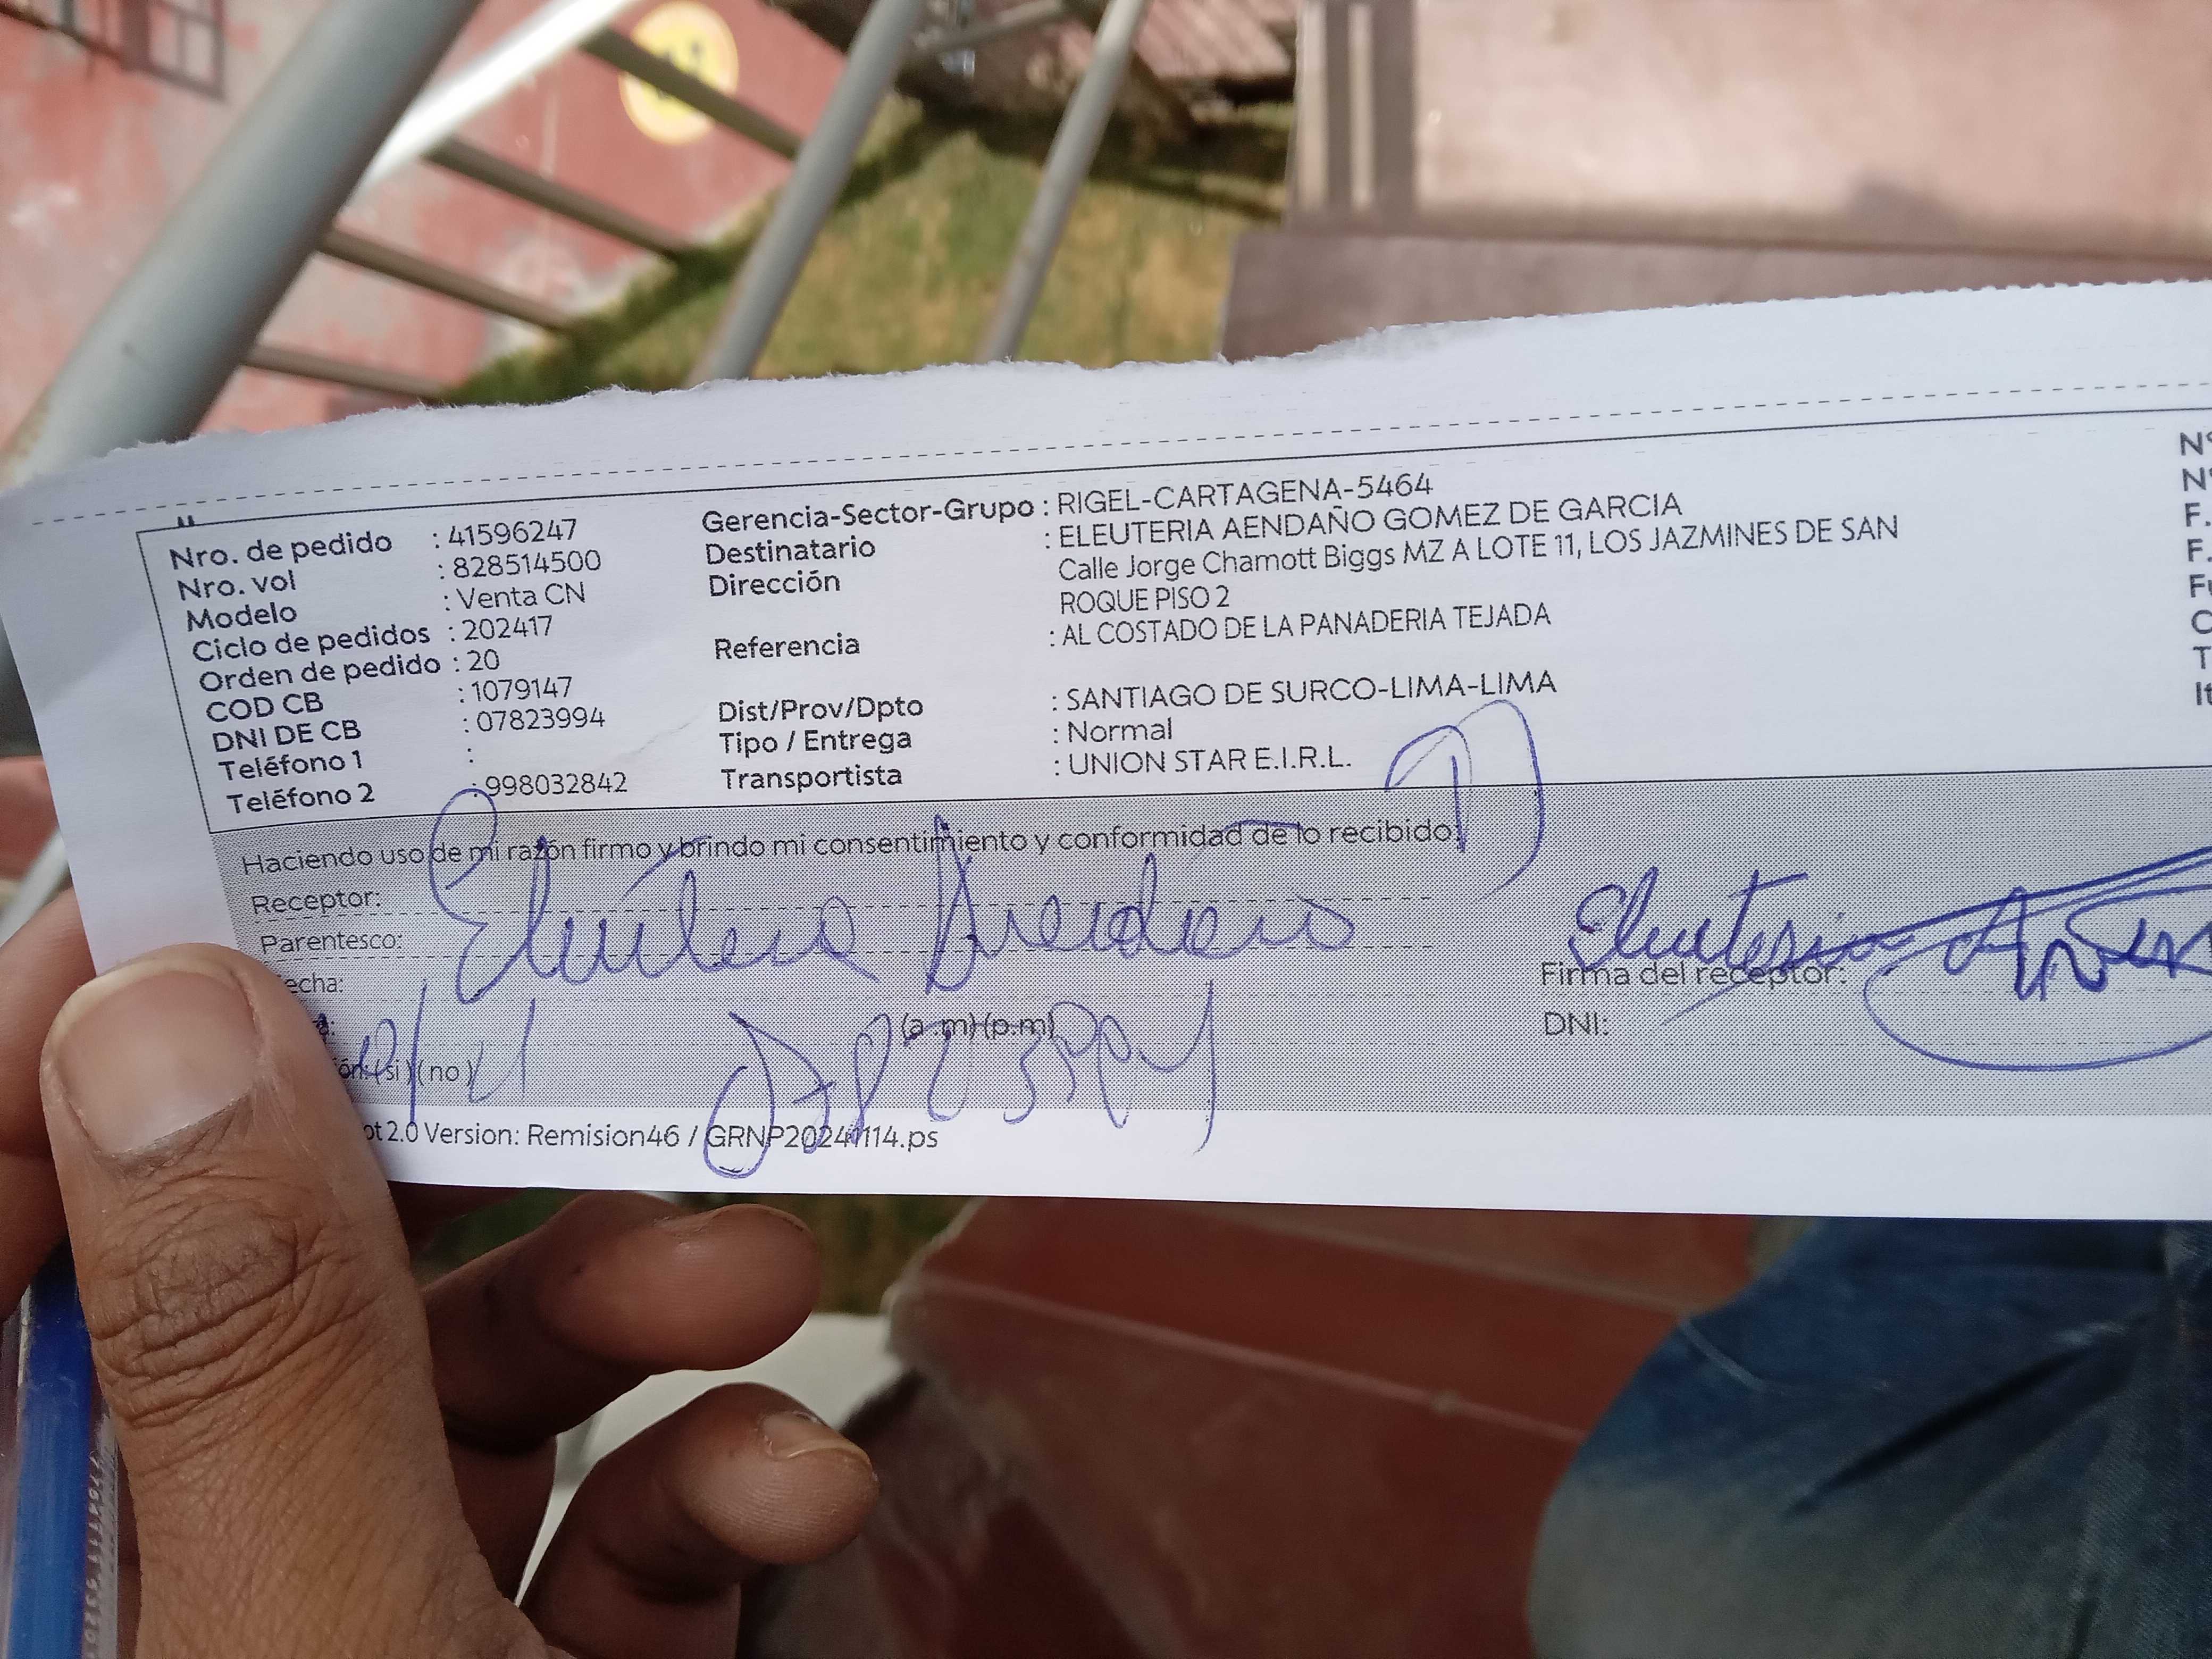 Nro. de pedido : 41596247
Nro. vol : 828514500
Modelo : Venta CN
Ciclo de pedidos : 202417
Orden de pedido : 20
COD CB : 1079147
DNI DE CB : 07823994
Teléfono 1 :
Teléfono 2 : 998032842
Gerencia-Sector-Grupo : RIGEL-CARTAGENA-5464
Destinatario : ELEUTERIA AENDAÑO GOMEZ DE GARCIA
Dirección : Calle Jorge Chamott Biggs MZ A LOTE 11, LOS JAZMINES DE SAN
ROQUE PISO 2
Referencia : AL COSTADO DE LA PANADERIA TEJADA
Dist/Prov/Dpto : SANTIAGO DE SURCO-LIMA-LIMA
Tipo / Entrega : Normal
Transportista : UNION STAR E.I.R.L.
N°
N°
F.
F.
Haciendo uso de mi razón firmo y brindo mi consentimiento y conformidad de lo recibido.
Receptor:
Parentesco:
echa:
(a .m) (p.m)
ón: ( si ) ( no )
Eleuteria
Firma del receptor:
DNI:
ot 2.0 Version: Remision46 / GRNP20241114.ps